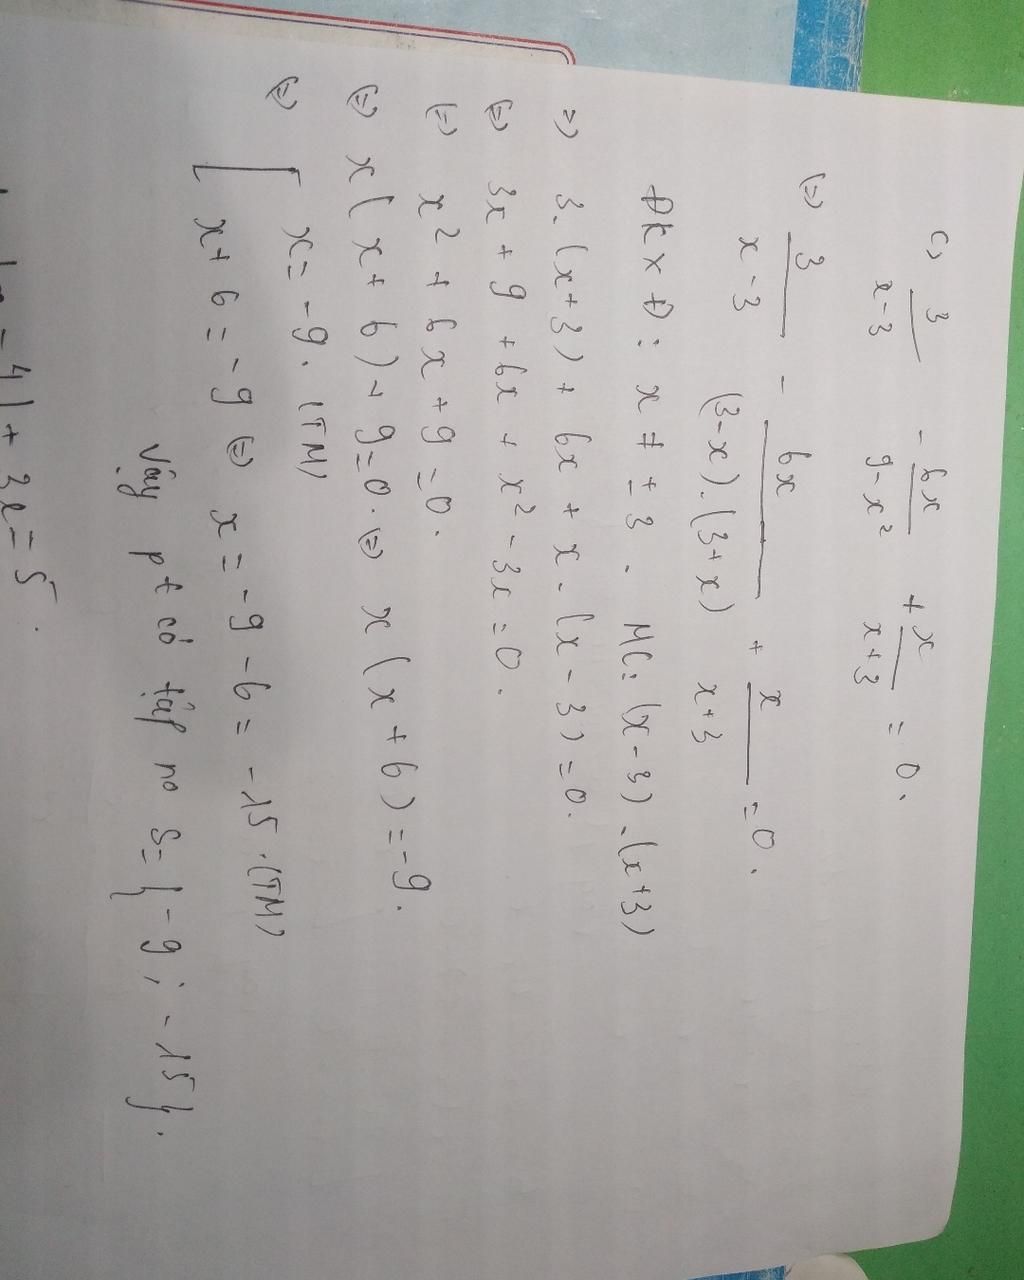 c) 3/(x-3) - 6x/(9-x²) + x/(x+3) = 0.
(=) 3/(x-3) - 6x/((3-x).(3+x)) + x/(x+3) = 0.
ĐKXĐ: x ≠ ±3. MC: (x-3).(x+3)
=) 3.(x+3) + 6x + x.(x-3) = 0.
(=) 3x + 9 + 6x + x² - 3x = 0.
(=) x² + 6x + 9 = 0.
(=) x(x+6) + 9 = 0. (=) x(x+6) = -9.
(=) [ x = -9. (TM)
x + 6 = -9 (=) x = -9 - 6 = -15. (TM)
Vậy pt có tập no S = {-9; -15}.
- 4| + 3x = 5.